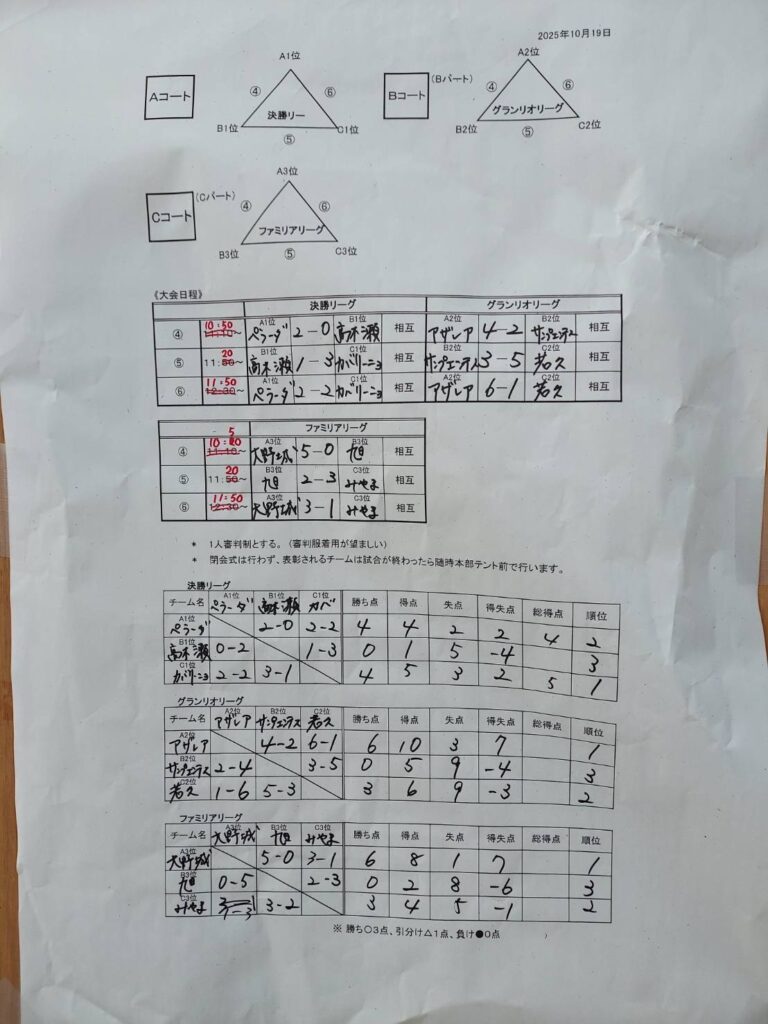 2025年10月19日
A1位 A2位
Aコート ④ ⑥ 決勝リー Bコート (Bパート) ④ ⑥ グランリオリーグ
B1位 ⑤ C1位 B2位 ⑤ C2位
A3位
Cコート (Cパート) ④ ⑥
ファミリアリーグ
B3位 ⑤ C3位
《大会日程》
決勝リーグ グランリオリーグ
④ 10:50 11:10~ A1位 ペラーダ 2-0 B1位 高木瀬 相互 A2位 アザレア 4-2 B2位 サンフェンテス 相互
⑤ 20 11:50~ B1位 高木瀬 1-3 C1位 カバリーニョ 相互 B2位 サンフェンテス 3-5 C2位 若久 相互
⑥ 11:50 12:30~ A1位 ペラーダ 2-2 C1位 カバリーニョ 相互 A2位 アザレア 6-1 C2位 若久 相互
ファミリアリーグ
④ 5 10:20 11:10~ A3位 大野城 5-0 B3位 旭 相互
⑤ 20 11:50~ B3位 旭 2-3 C3位 みやま 相互
⑥ 11:50 12:30~ A3位 大野城 3-1 C3位 みやま 相互
* 1人審判制とする。(審判服着用が望ましい)
* 閉会式は行わず、表彰されるチームは試合が終わったら随時本部テント前で行います。
決勝リーグ
チーム名 A1位 ペラーダ B1位 高木瀬 C1位 カバ 勝ち点 得点 失点 得失点 総得点 順位
A1位 ペラーダ 2-0 2-2 4 4 2 2 4 2
B1位 高木瀬 0-2 1-3 0 1 5 -4 3
C1位 カバリーニョ 2-2 3-1 4 5 3 2 5 1
グランリオリーグ
チーム名 A2位 アザレア B2位 サンフェンテス C2位 若久 勝ち点 得点 失点 得失点 総得点 順位
A2位 アザレア 4-2 6-1 6 10 3 7 1
B2位 サンフェンテス 2-4 3-5 0 5 9 -4 3
C2位 若久 1-6 5-3 3 6 9 -3 2
ファミリアリーグ
チーム名 A3位 大野城 B3位 旭 C3位 みやま 勝ち点 得点 失点 得失点 総得点 順位
A3位 大野城 5-0 3-1 6 8 1 7 1
B3位 旭 0-5 2-3 0 2 8 -6 3
C3位 みやま 3-1 1-3 3-2 3 4 5 -1 2
※ 勝ち○3点、引分け△1点、負け●0点